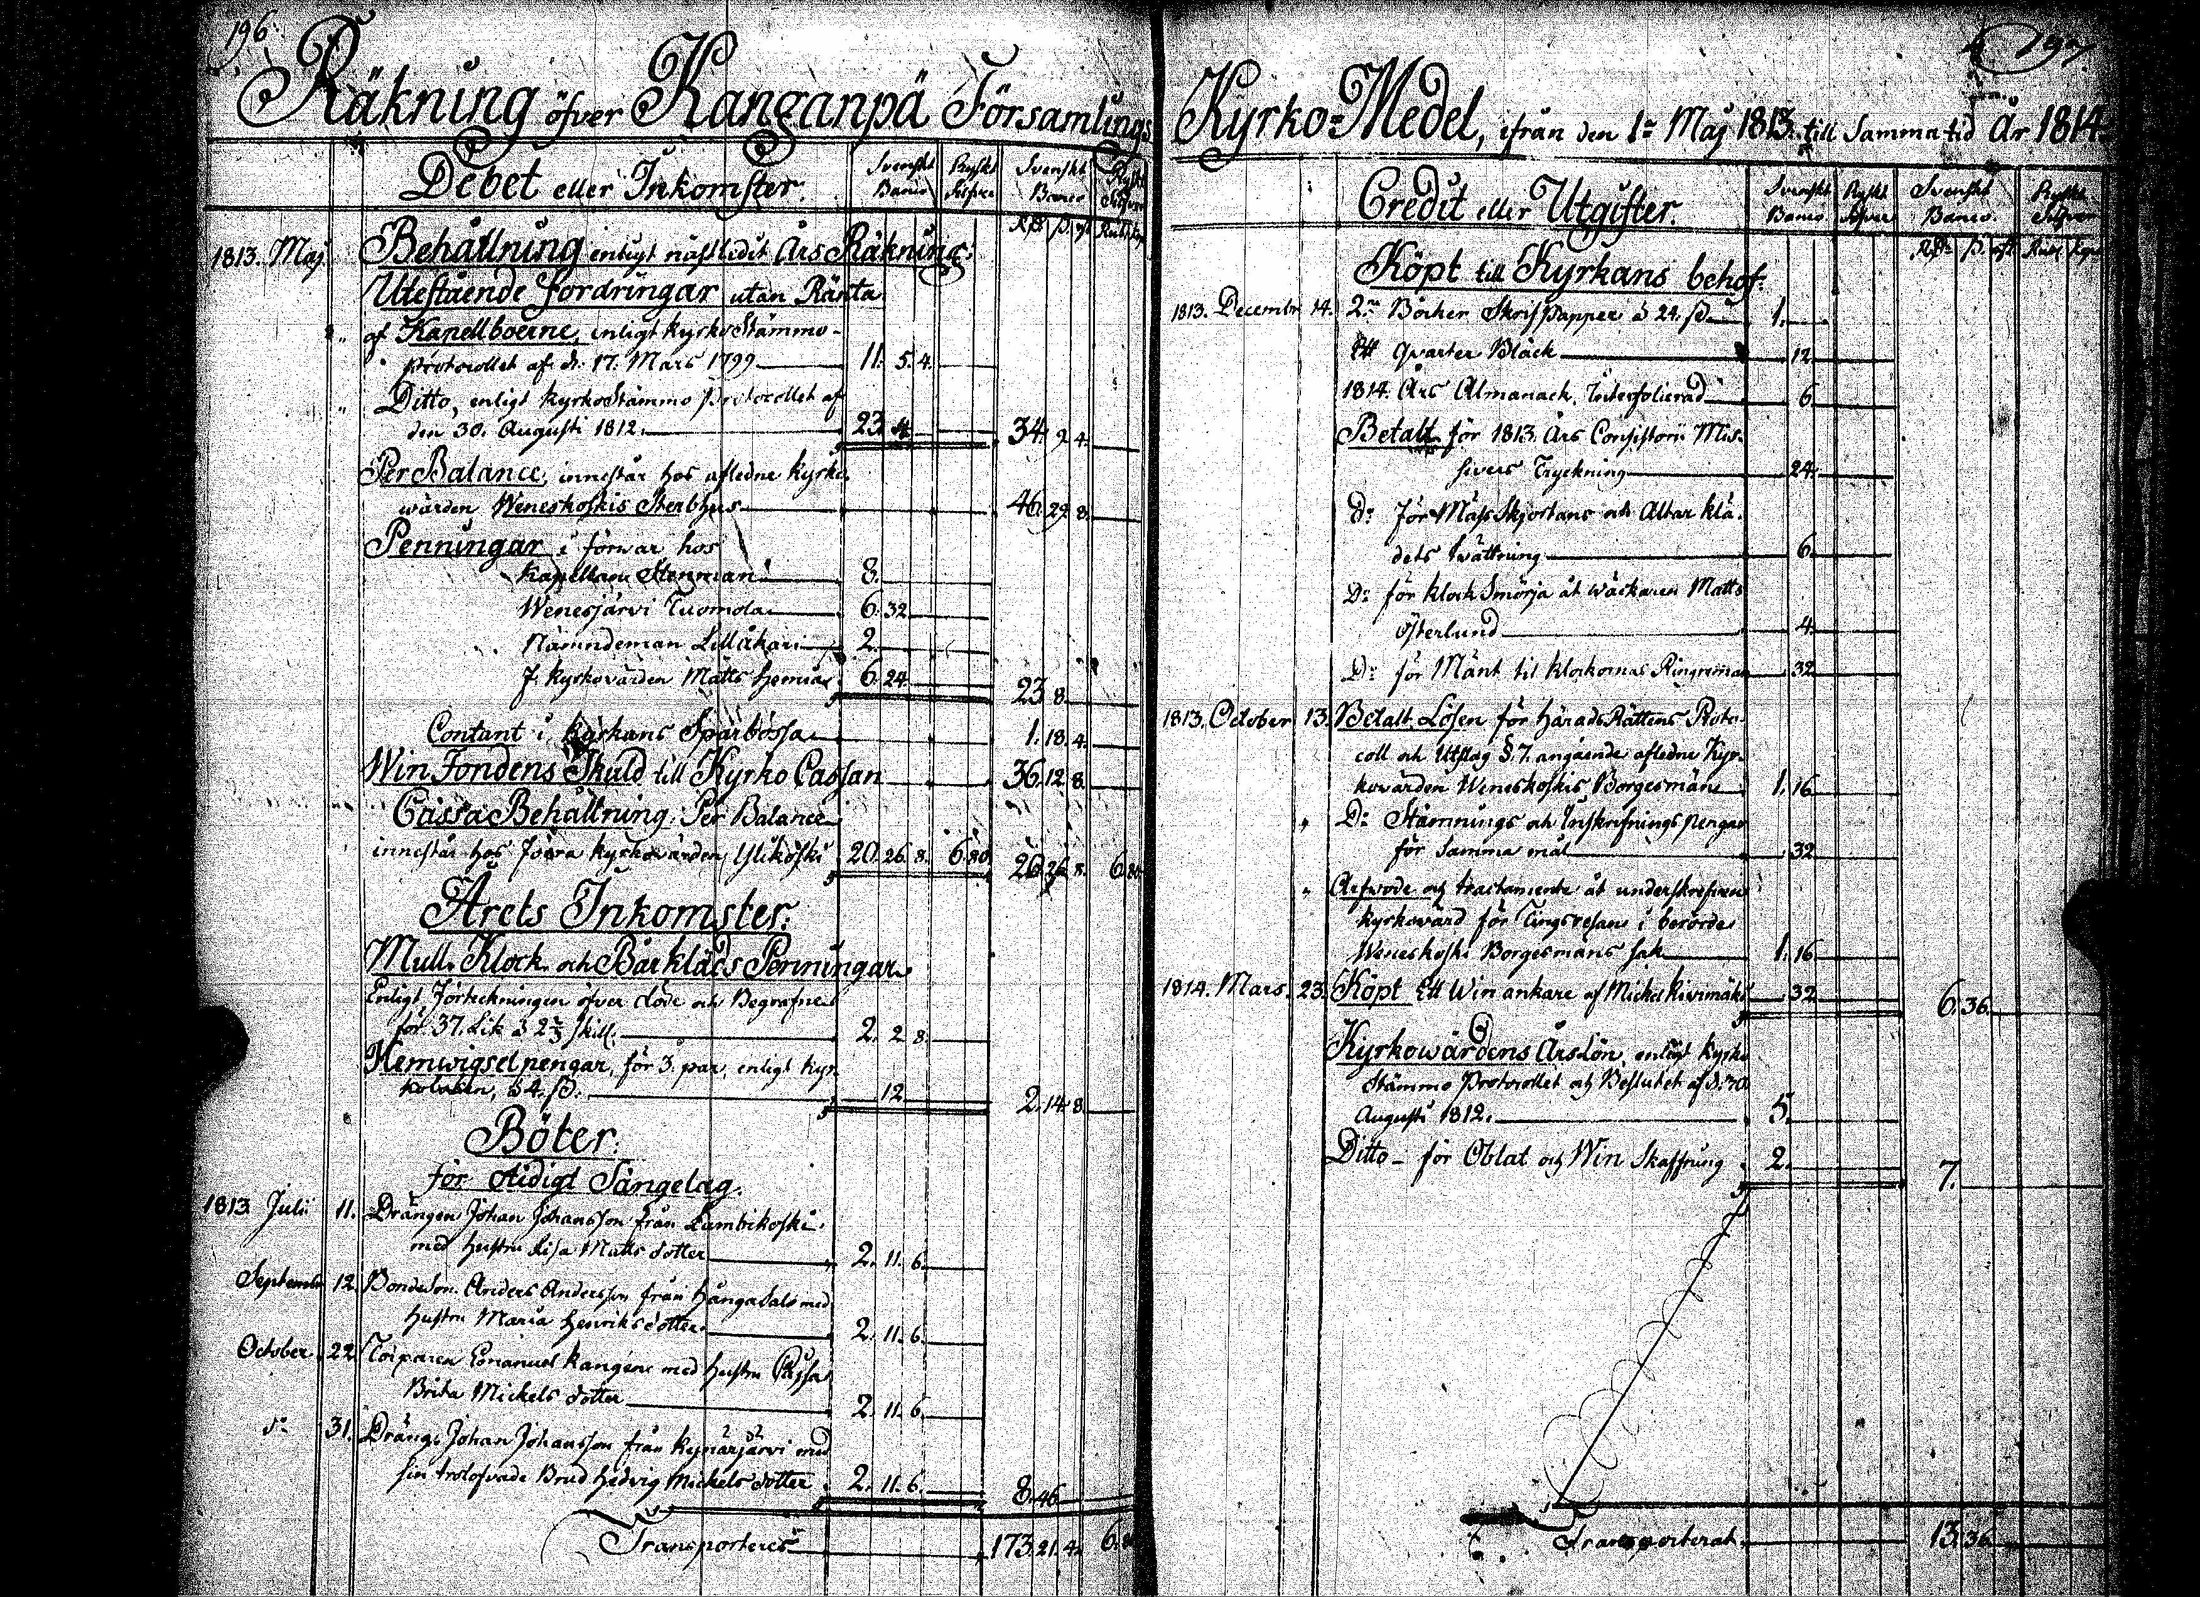 196.
Räkning öfver Kanganpä Församlings
Debet eller Inkomster.
Svenskt Banco
Ryskt Silfver
Svenskt Banco
Ryskt Silfver
1813. Maj. Behållning enligt näst ledit Års Räkning:
Utestående fordringar utan Ränta
" af Kapellboerne, enligt KyrkoStämmo-
protocollet af d. 17. Mars 1799 11. 5. 4.
" Ditto, enligt KyrkoStämmo Protocollet af
den 30. Augusti 1812. 23. 4. 34. 9. 4.
Per Balance, innestår hos afledne Kyrko-
wärden Weneskoskis Sterbhus 46. 29. 8.
Penningar i förwar hos
Kapellanen Stenman 8.
Wenesjärvi Tuomola 6. 32.
Nämndeman Lillåkari 2.
f. Kyrkovärden Matts 6. 24. 23. 8.
Contant i Kyrkans Sparbössa 1. 18. 4.
Win Fondens Skuld till Kyrko Cassan 36. 12. 8.
Cassa Behållning Per Balance
innestår hos förra Kyrkovärden Ylikoski 20. 26. 8. 6. 80. 20. 26. 8. 6. 80.
Årets Inkomster:
Mull. Klock. och Bårkläds Penningar.
Enligt Förteckningen öfver döde och Begrafne
för 37. Lik à 2 2/3 Skill. 2. 2. 8.
Hemwigselpengar, för 3. par, enligt Kyr-
kolagen, à 4. ß. 12. 2. 14. 8.
Böter.
för otidigt Sängelag.
1813 Julii 11. Drängen Johan Johansson från Lambikoski
med hustru Lisa Matts dotter 2. 11. 6.
September 12. Bondeson. Anders Andersson från Hångasalo med
hustru Maria Henriks dotter. 2. 11. 6.
October 22. Torparen Emanuel Kangens med hustru
Brita Mickels dotter 2. 11. 6.
d:o 31. Dräng. Johan Johansson från Kynärjärvi med
sin trolofvade Brud Hedvig Mickels dotter 2. 11. 6. 8. 46.
Transporteres 173. 21. 4. 6. 80
197.
Kyrko-Medel, ifrån den 1:a Maj 1813. till Samma tid År 1814.
Credit eller Utgifter.
Svenskt Banco.
Ryskt Silfver
Svenskt Banco.
Ryskt Silfver
Köpt till Kyrkans behof:
1813. Decembr 14. 2:ne Böcker Skrifpapper à 24. ß. 1.
Ett Qvarter Bläck 12.
1814. Års Almanack, Interfolierad 6.
Betalt för 1813. Års Consistorii Mis-
sivers Tryckning 24.
D:o för MässSkjortans och Altar klä-
dets twättning 6.
D:o för Klock Smörja åt wäckaren Matts
Österlund 4.
D:o för Mänt til klockornas Ringreman 32.
1813. October 13. Betalt Lösen för HäradsRättens Proto-
coll och Utslag § 7. angående afledne Kyr-
kowärden Weneskoskis Borgesmän 1. 16.
" D:o Stämnings och Inskrifnings pengar
för samma mål 32
" Arfwode och tractamente åt underskrefven
Kyrkowärd för Tingsresan i berörde
Weneskoski Borgesmäns sak 1. 16.
1814. Mars. 23. Köpt Ett Win ankare af Michel 32 6. 36.
Kyrkowärdens Årslön, enligt Kyrko
Stämmo Protocollet och Beslutet af d. 30
Augusti 1812. 5.
Ditto - för Oblat och Win Skaffning 2. 7.
Transporterat. 13. 36.